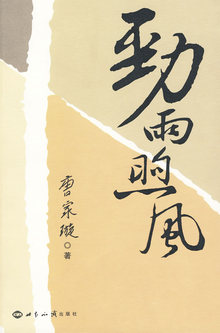 劲雨煦風
曹家璇
著
世界知识出版社